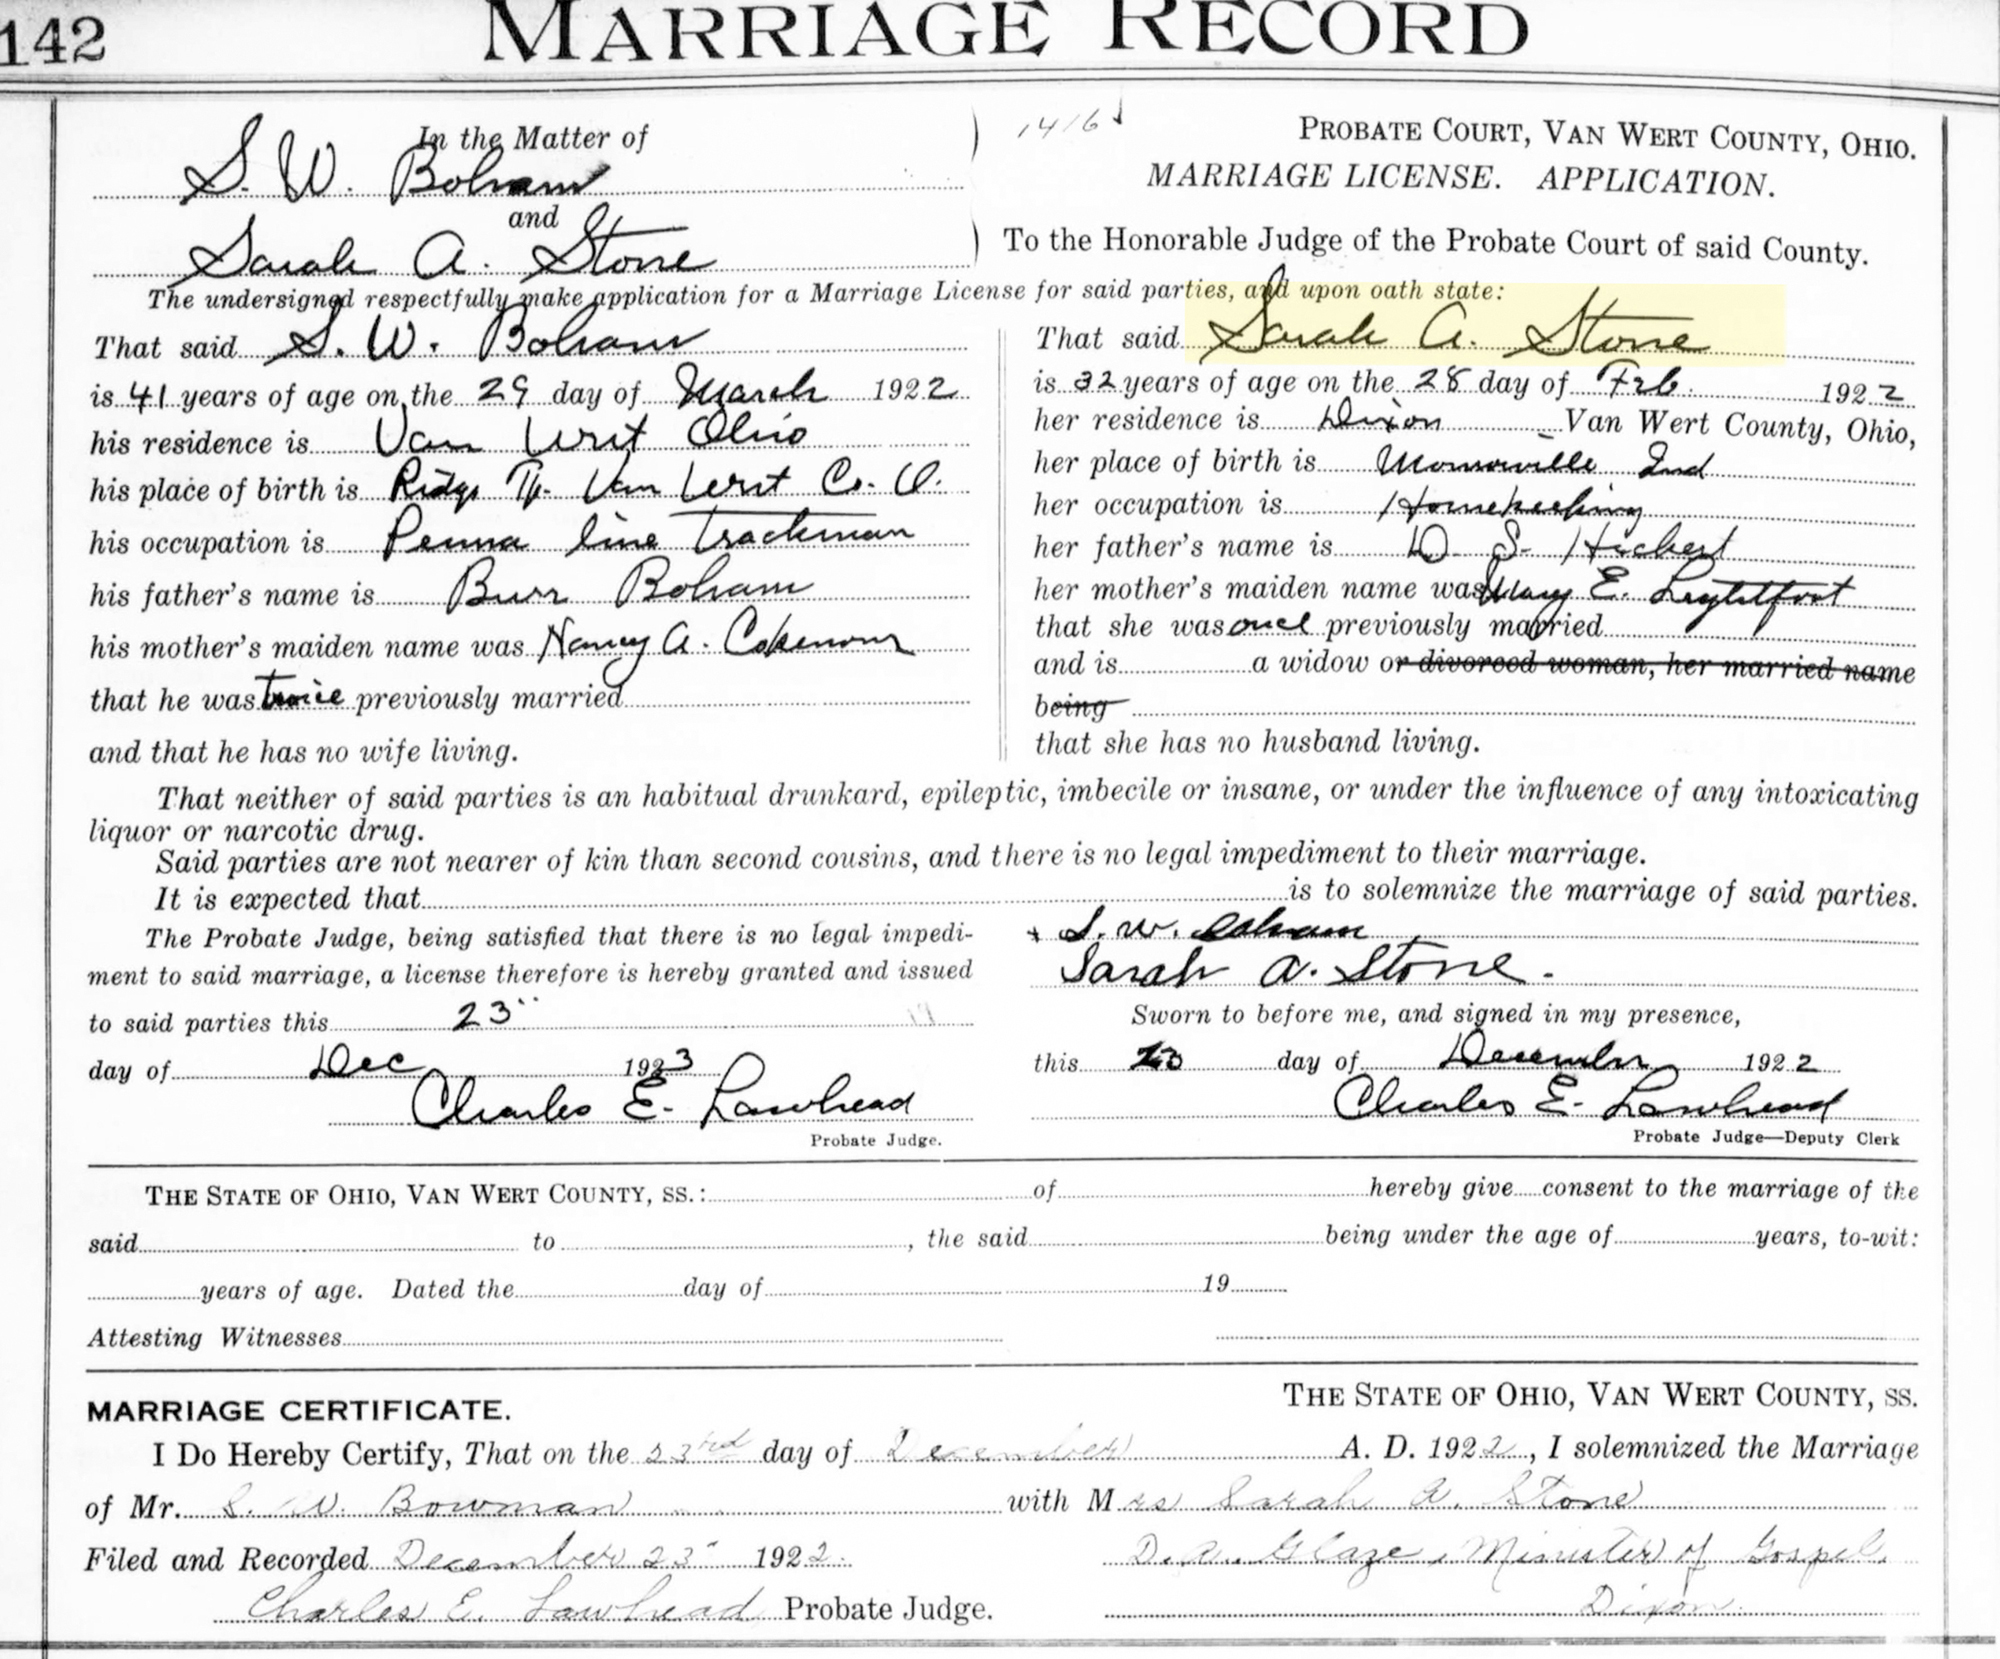 142 MARRIAGE RECORD
In the Matter of
S. W. Boham
and
Sarah A. Stone
1416
PROBATE COURT, VAN WERT COUNTY, OHIO.
MARRIAGE LICENSE. APPLICATION.
To the Honorable Judge of the Probate Court of said County.
The undersigned respectfully make application for a Marriage License for said parties, and upon oath state:
That said S. W. Boham
is 41 years of age on the 29 day of March 1922
his residence is Van Wert Ohio
his place of birth is Ridge Tp. Van Wert Co. O.
his occupation is Penna line Trackman
his father's name is Burr Boham
his mother's maiden name was Nancy A. Cokenour
that he was twice previously married
and that he has no wife living.
That said Sarah A. Stone
is 32 years of age on the 28 day of Feb. 1922
her residence is Dixon Van Wert County, Ohio,
her place of birth is Monroeville Ind
her occupation is Housekeeping
her father's name is D. S. Hickert
her mother's maiden name was Mary E. Leytlfoot
that she was once previously married
and is a widow or divorced woman, her married name
being
that she has no husband living.
That neither of said parties is an habitual drunkard, epileptic, imbecile or insane, or under the influence of any intoxicating
liquor or narcotic drug.
Said parties are not nearer of kin than second cousins, and there is no legal impediment to their marriage.
It is expected that is to solemnize the marriage of said parties.
The Probate Judge, being satisfied that there is no legal impedi-
ment to said marriage, a license therefore is hereby granted and issued
to said parties this 23"
day of Dec 1923
Charles E. Lawhead
Probate Judge.
+ S. W. Boham
Sarah A. Stone.
Sworn to before me, and signed in my presence,
this 23 day of December 1922
Charles E. Lawhead
Probate Judge—Deputy Clerk
THE STATE OF OHIO, VAN WERT COUNTY, SS.: of hereby give consent to the marriage of the
said to , the said being under the age of years, to-wit:
years of age. Dated the day of 19
Attesting Witnesses
MARRIAGE CERTIFICATE.
THE STATE OF OHIO, VAN WERT COUNTY, SS.
I Do Hereby Certify, That on the 23rd day of December A. D. 1922, I solemnized the Marriage
of Mr. S. W. Bowman with Mrs Sarah A. Stone
Filed and Recorded December 23" 1922. D. A. Glaze, Minister of Gospel,
Charles E. Lawhead Probate Judge. Dixon.